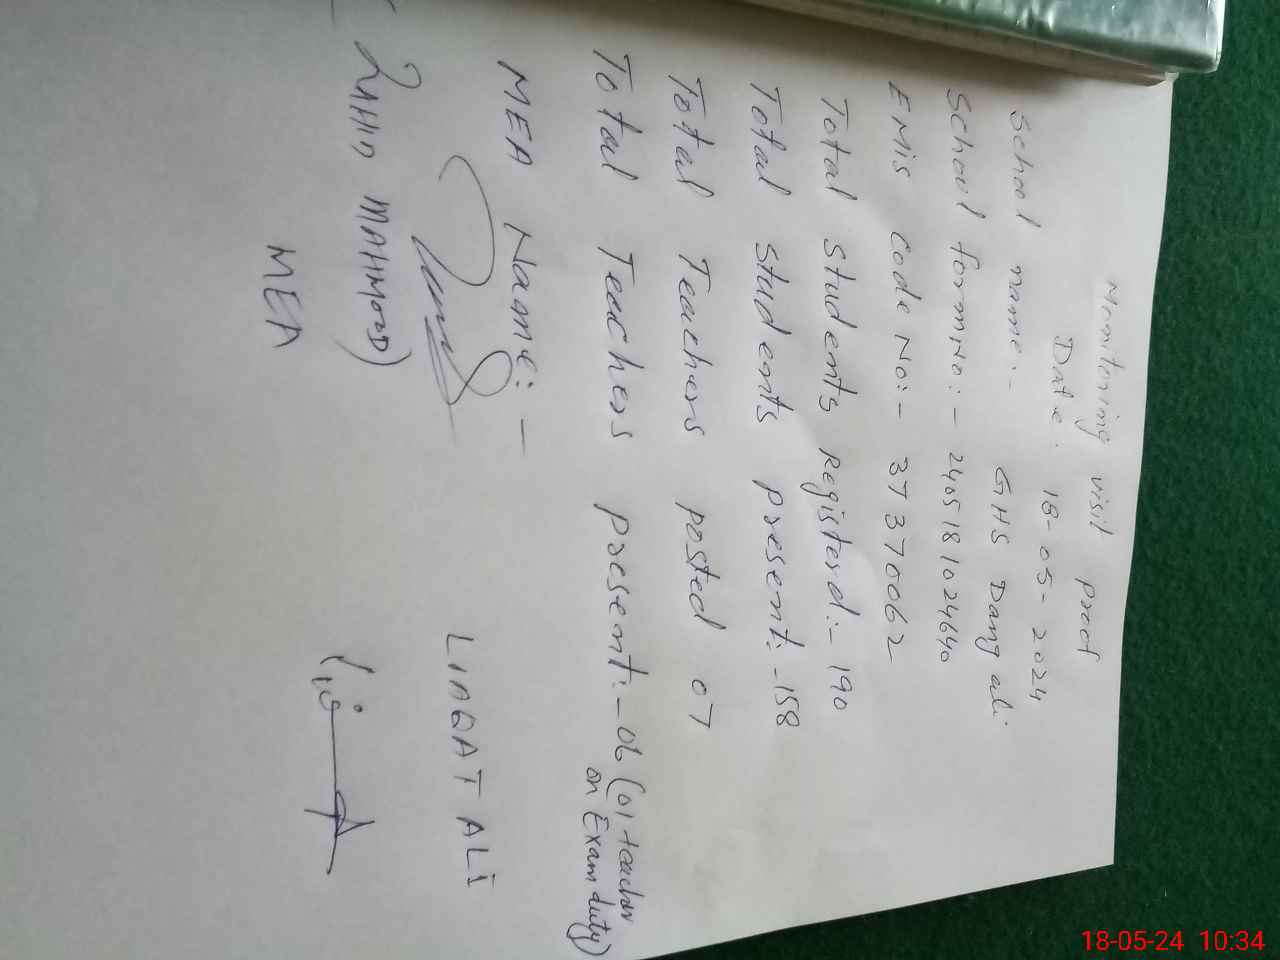 Monitoring visit proof
Date. 18-05-2024
School name:- GHS Dang ali
School form No:- 2405181024640
EMis code No:- 37370062
Total students registerd:- 190
Total students present:-158
Total Teachers posted 07
Total Teachers present:-06 (01 teacher
on Exam duty)
MEA Naame:-
LIAQAT ALI
ZAHID MAHMOOD)
MEA
18-05-24 10:34